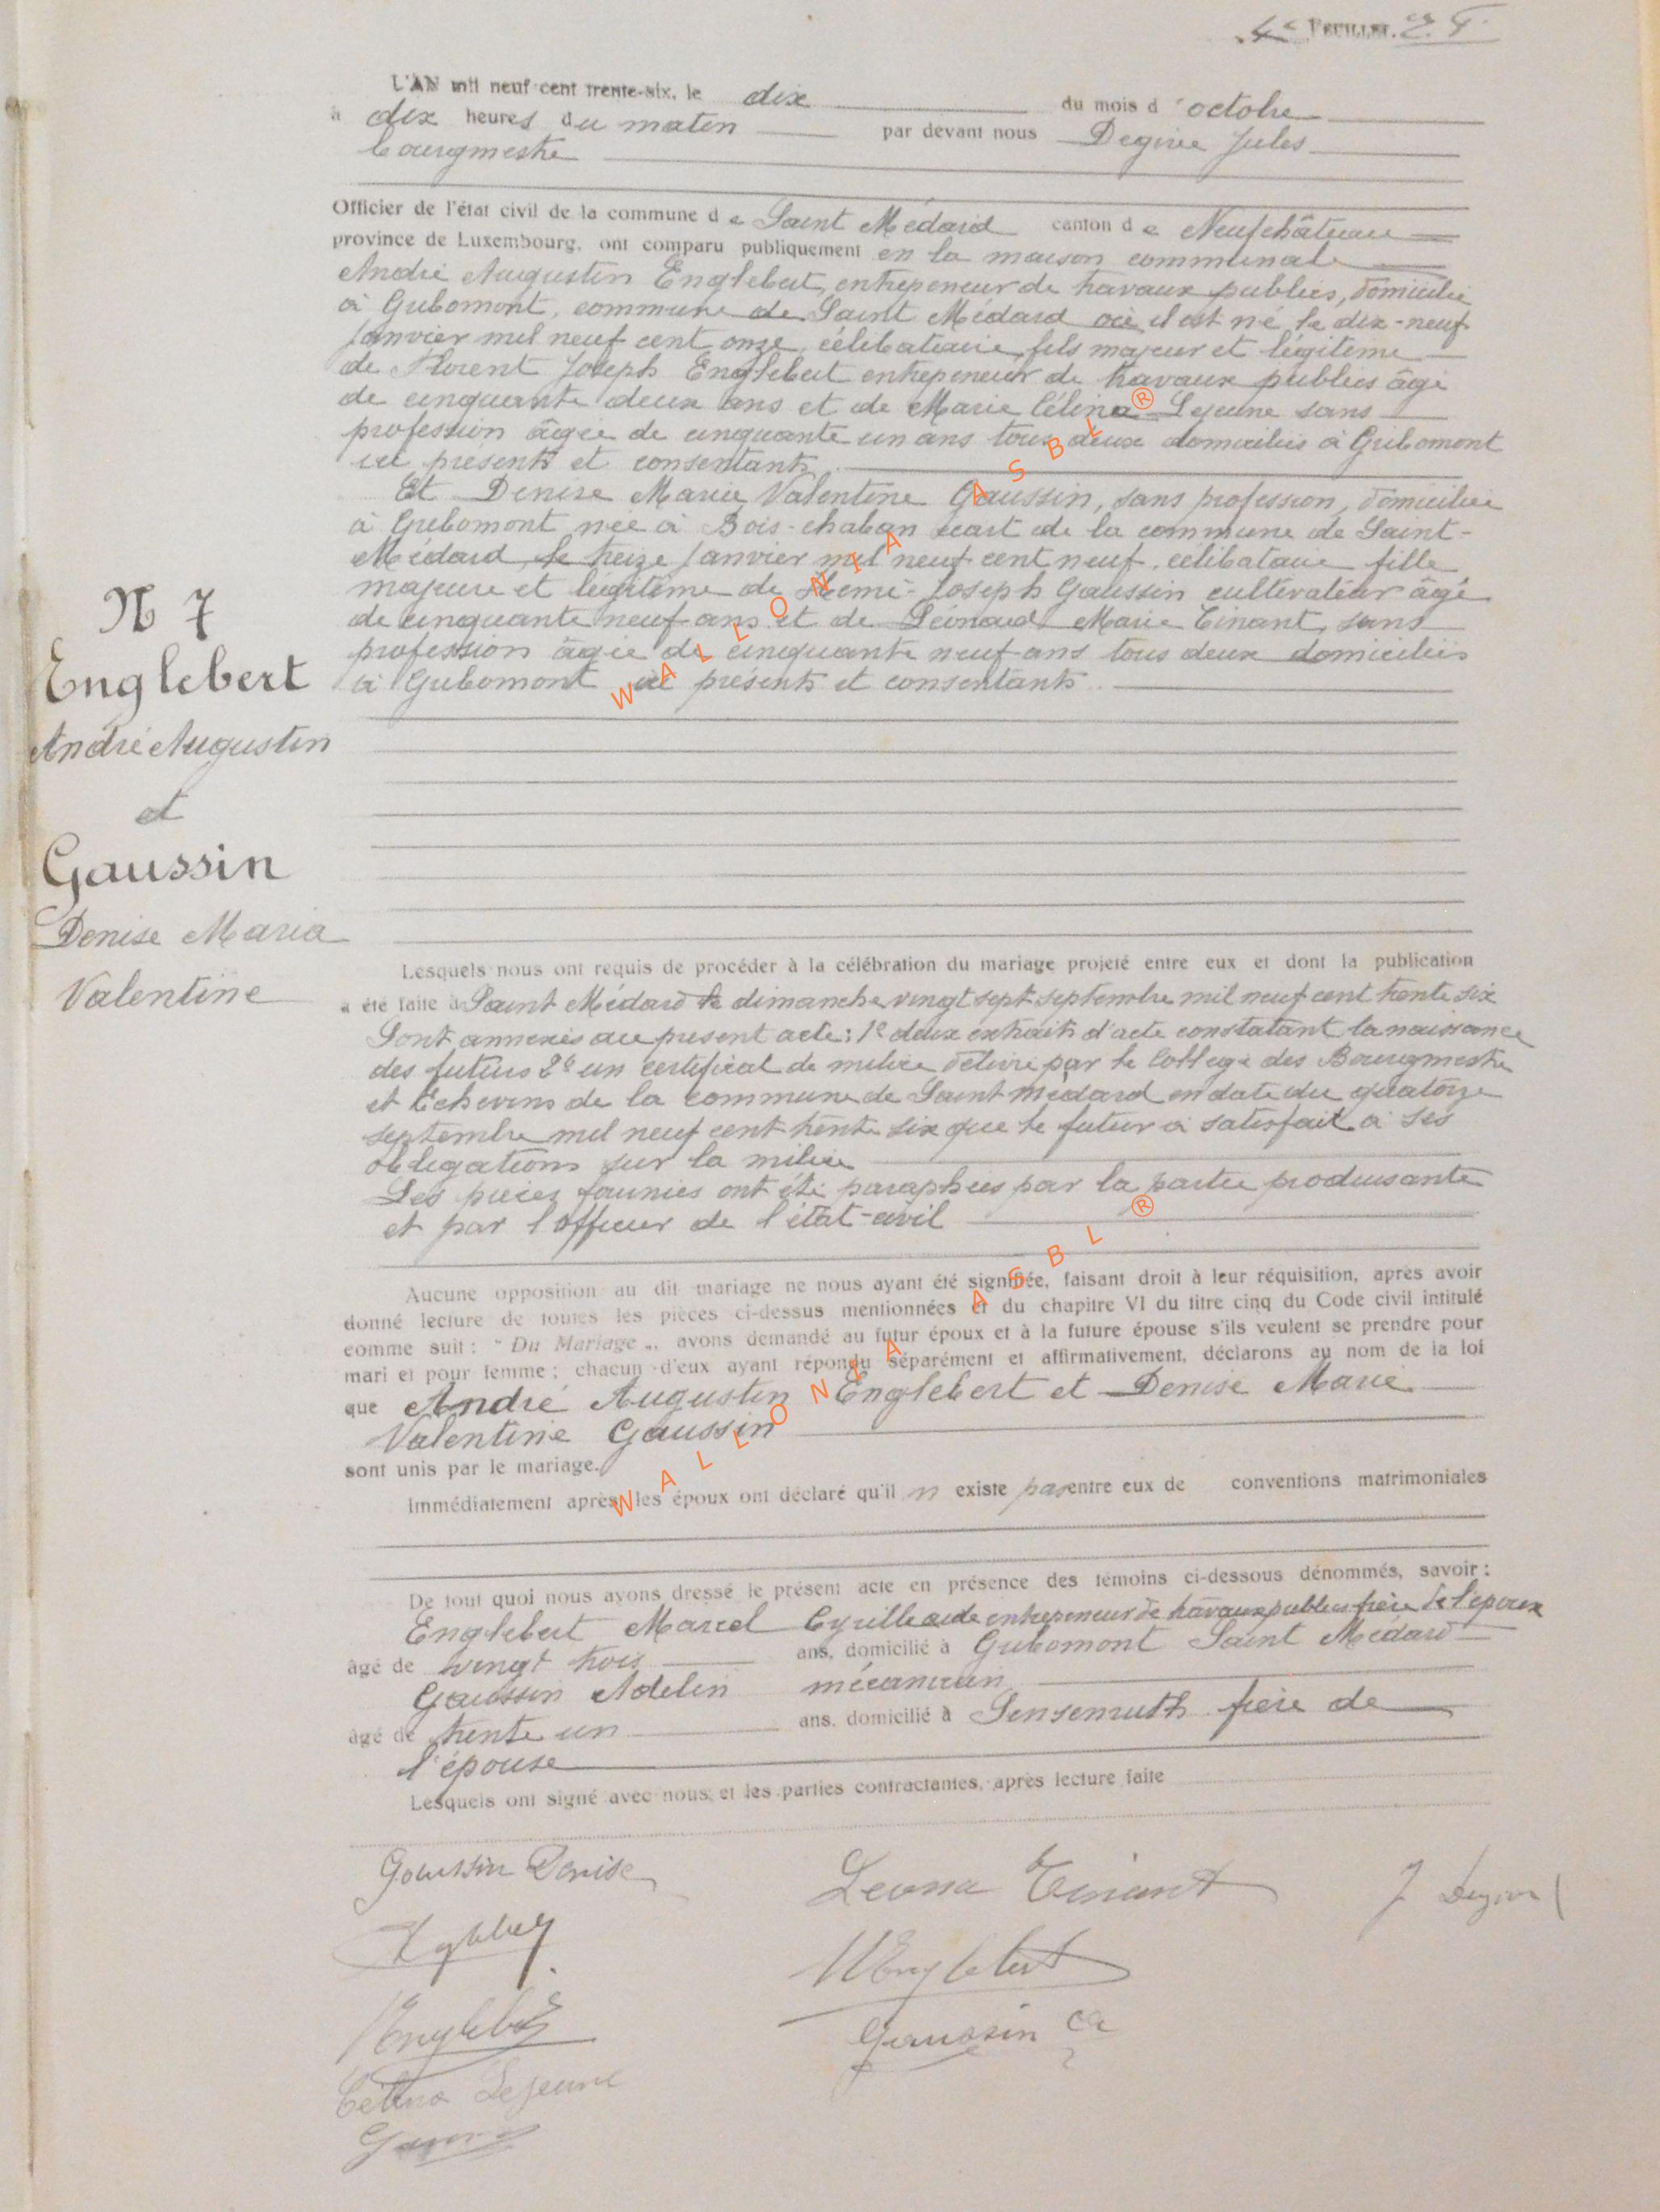 4e FEUILLET.
L'AN mil neuf cent trente-six, le dix du mois d'octobre
à dix heures du matin par devant nous Degive Jules
bourgmestre
Officier de l'état civil de la commune de Saint Médard canton de Neufchâteau
province de Luxembourg, ont comparu publiquement en la maison communale
André Augustin Englebert, entrepeneur de travaux publics, domicilié
à Gribomont, commune de Saint Médard où il est né le dix-neuf
janvier mil neuf cent onze, célibataire, fils majeur et légitime
de Florent Joseph Englebert entrepeneur de travaux publics âgé
de cinquante deux ans et de Marie Célina Lejeune sans
profession âgée de cinquante un ans tous deux domiciliés à Gribomont
ici présents et consentants
Et Denise Marie Valentine Gaussin, sans profession, domiciliée
à Gribomont née à Bois-chaban écart de la commune de Saint-
Médard, le treize janvier mil neuf cent neuf, célibataire fille
majeure et légitime de Remi-Joseph Gaussin cultivateur âgé
de cinquante neuf ans et de Léonard Marie Tinant, sans
profession âgée de cinquante neuf ans tous deux domiciliés
à Gribomont ici présents et consentants.
N 7
Englebert
André Augustin
et
Gaussin
Denise Maria
Valentine
Lesquels nous ont requis de procéder à la célébration du mariage projeté entre eux et dont la publication
a été faite à Saint Médard le dimanche vingt sept septembre mil neuf cent trente six
Sont annexés au présent acte: 1° deux extraits d'acte constatant la naissance
des futurs 2° un certificat de milice délivré par le Collège des Bourgmestre
et Echevins de la commune de Saint médard en date du quatorze
septembre mil neuf cent trente six que le futur a satisfait à ses
obligations sur la milice
Les pièces fournies ont été paraphées par la partie produisante
et par l'officier de l'état-civil
Aucune opposition au dit mariage ne nous ayant été signifiée, faisant droit à leur réquisition, après avoir
donné lecture de toutes les pièces ci-dessus mentionnées et du chapitre VI du titre cinq du Code civil intitulé
comme suit: "Du Mariage", avons demandé au futur époux et à la future épouse s'ils veulent se prendre pour
mari et pour femme; chacun d'eux ayant répondu séparément et affirmativement, déclarons au nom de la loi
que André Augustin Englebert et Denise Marie
Valentine Gaussin
sont unis par le mariage.
Immédiatement après, les époux ont déclaré qu'il n existe pas entre eux de conventions matrimoniales
De tout quoi nous avons dressé le présent acte en présence des témoins ci-dessous dénommés, savoir:
Englebert Marcel Cyrille aide entrepreneur de travaux publics frère de l'époux
âgé de vingt trois ans, domicilié à Gribomont Saint Médard
Gaussin Adelin mécanicien
âgé de trente un ans, domicilié à Sensenruth frère de
l'épouse
Lesquels ont signé avec nous, et les parties contractantes, après lecture faite
Gaussin Denise
Leona Tinant
J Degive
MEnglebert
Englebert
Gaussin
Célina Lejeune
WALLONIA ASBL ®
WALLONIA ASBL ®